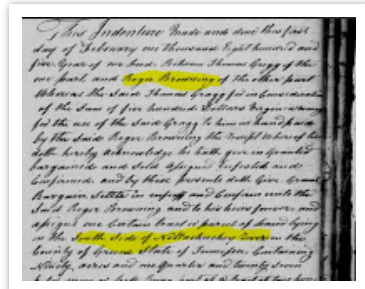 This Indenture made and done this first
day of February one thousand Eight hundred and
five Year of our Lord Between Thomas Gragg of the
one part and Roger Browning of the other part
Whereas the Said Thomas Gragg for in Consideration
of the Sum of five hundred Dollars
for the use of the Said Gragg to him in hand paid
by the Said Roger Browning the receipt whereof he
doth hereby acknowledge he hath give in Granted
Bargained and Sold
Confirmed and by these presents doth Give Grant
Bargain and Confirm unto the
Said Roger Browning and to his heirs forever and
assigns one Certain tract or parcel of land lying
in the South Side of Nollachuckey River in the
County of Greene State of Tennessee Containing
Ninety acres and one Quarter and twenty Seven